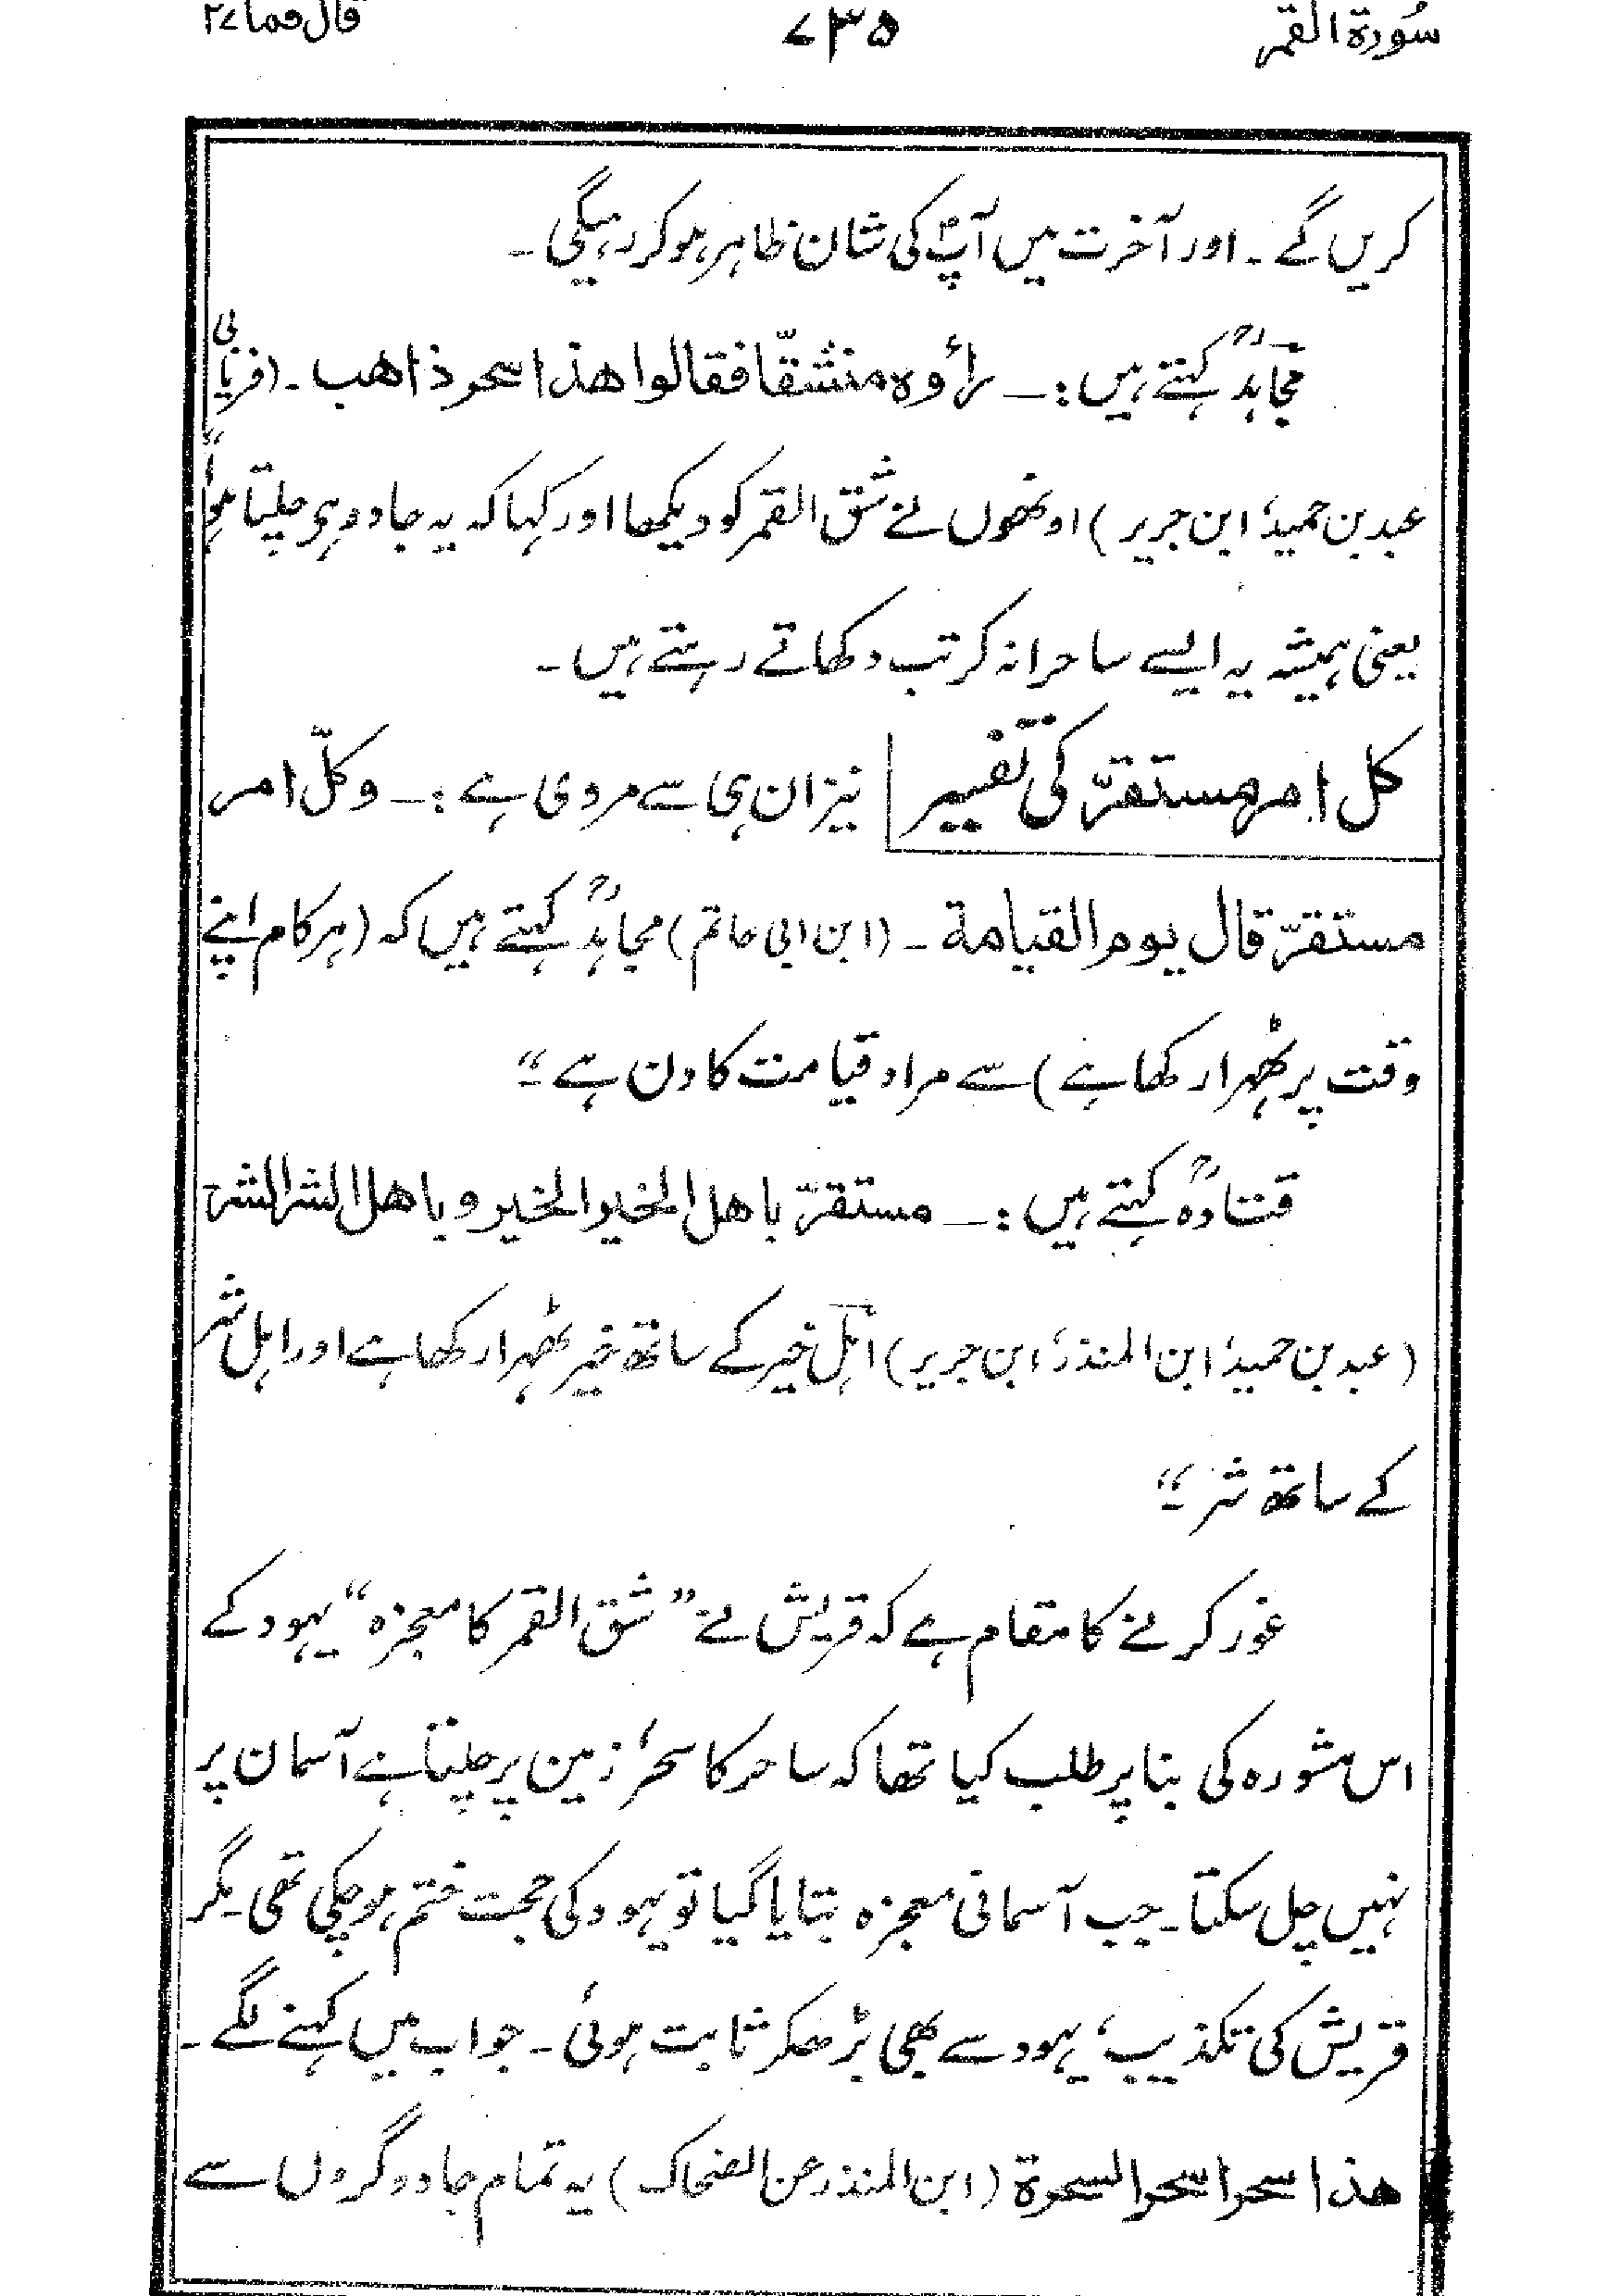 سُورۃ القمر ۷۳۵ قال فما ۲۷
کریں گے۔ اور آخرت میں آپؐ کی شان ظاہر ہو کر رہیگی۔
مجاہدؒ کہتے ہیں:۔ رأوه منشقّا فقالوا هذا سحر ذاهب۔ (فریابی
عبد بن حمید، ابن جریر) اونھوں نے شق القمر کو دیکھا اور کہا کہ یہ جادو ہی چلتا ہوا"
یعنی ہمیشہ یہ ایسے ساحرانہ کرتب دکھاتے رہتے ہیں۔
کل امر مستقرّ کی تفسیر نیز ان ہی سے مروی ہے:۔ وکلّ امر
مستقرّ قال یوم القیامة۔ (ابن ابی حاتم) مجاہدؒ کہتے ہیں کہ (ہر کام اپنے
وقت پر ٹھہرا رکھا ہے) سے مراد قیامت کا دن ہے۔"
قتادہؒ کہتے ہیں:۔ مستقرّ باهل الخیر الخیر و باهل الشر الشر
(عبد بن حمید، ابن المنذر، ابن جریر) اہل خیر کے ساتھ خیر ٹھہرا رکھا ہے اور اہل شر
کے ساتھ شر۔"
غور کرنے کا مقام ہے کہ قریش نے "شق القمر کا معجزہ" یہود کے
اس مشورہ کی بنا پر طلب کیا تھا کہ ساحر کا سحر، زمین پر چلتا ہے آسمان پر
نہیں چل سکتا۔ جب آسمانی معجزہ بتایا گیا تو یہود کی حجت ختم ہو چکی تھی۔ مگر
قریش کی تکذیب، یہود سے بھی بڑھکر ثابت ہوئی۔ جواب میں کہنے لگے۔
هذا سحر اسحر السحرة (ابن المنذر عن الضحاک) یہ تمام جادوگروں سے